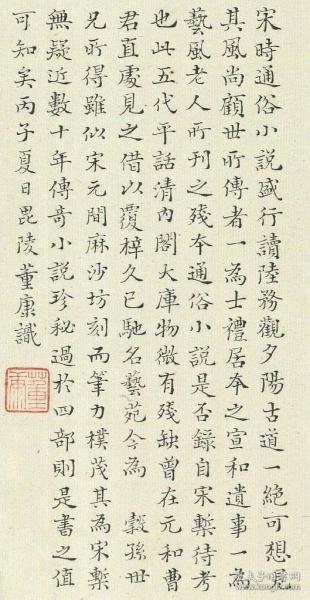 宋時通俗小說盛行讀陸務觀夕陽古道一絕可想見
其風尚顧世所傳者一為士禮居本之宣和遺事一為
藝風老人所刊之殘本通俗小說是否錄自宋槧待考
也此五代平話清內閣大庫物微有殘缺曾在元和曹
君直處見之借以覆梓久已馳名藝苑今為 穀孫世
兄所得雖似宋元間麻沙坊刻而筆力樸茂其為宋槧
無疑近數十年傳奇小說珍秘過於四部則是書之值
可知矣丙子夏日毘陵董康識
董康